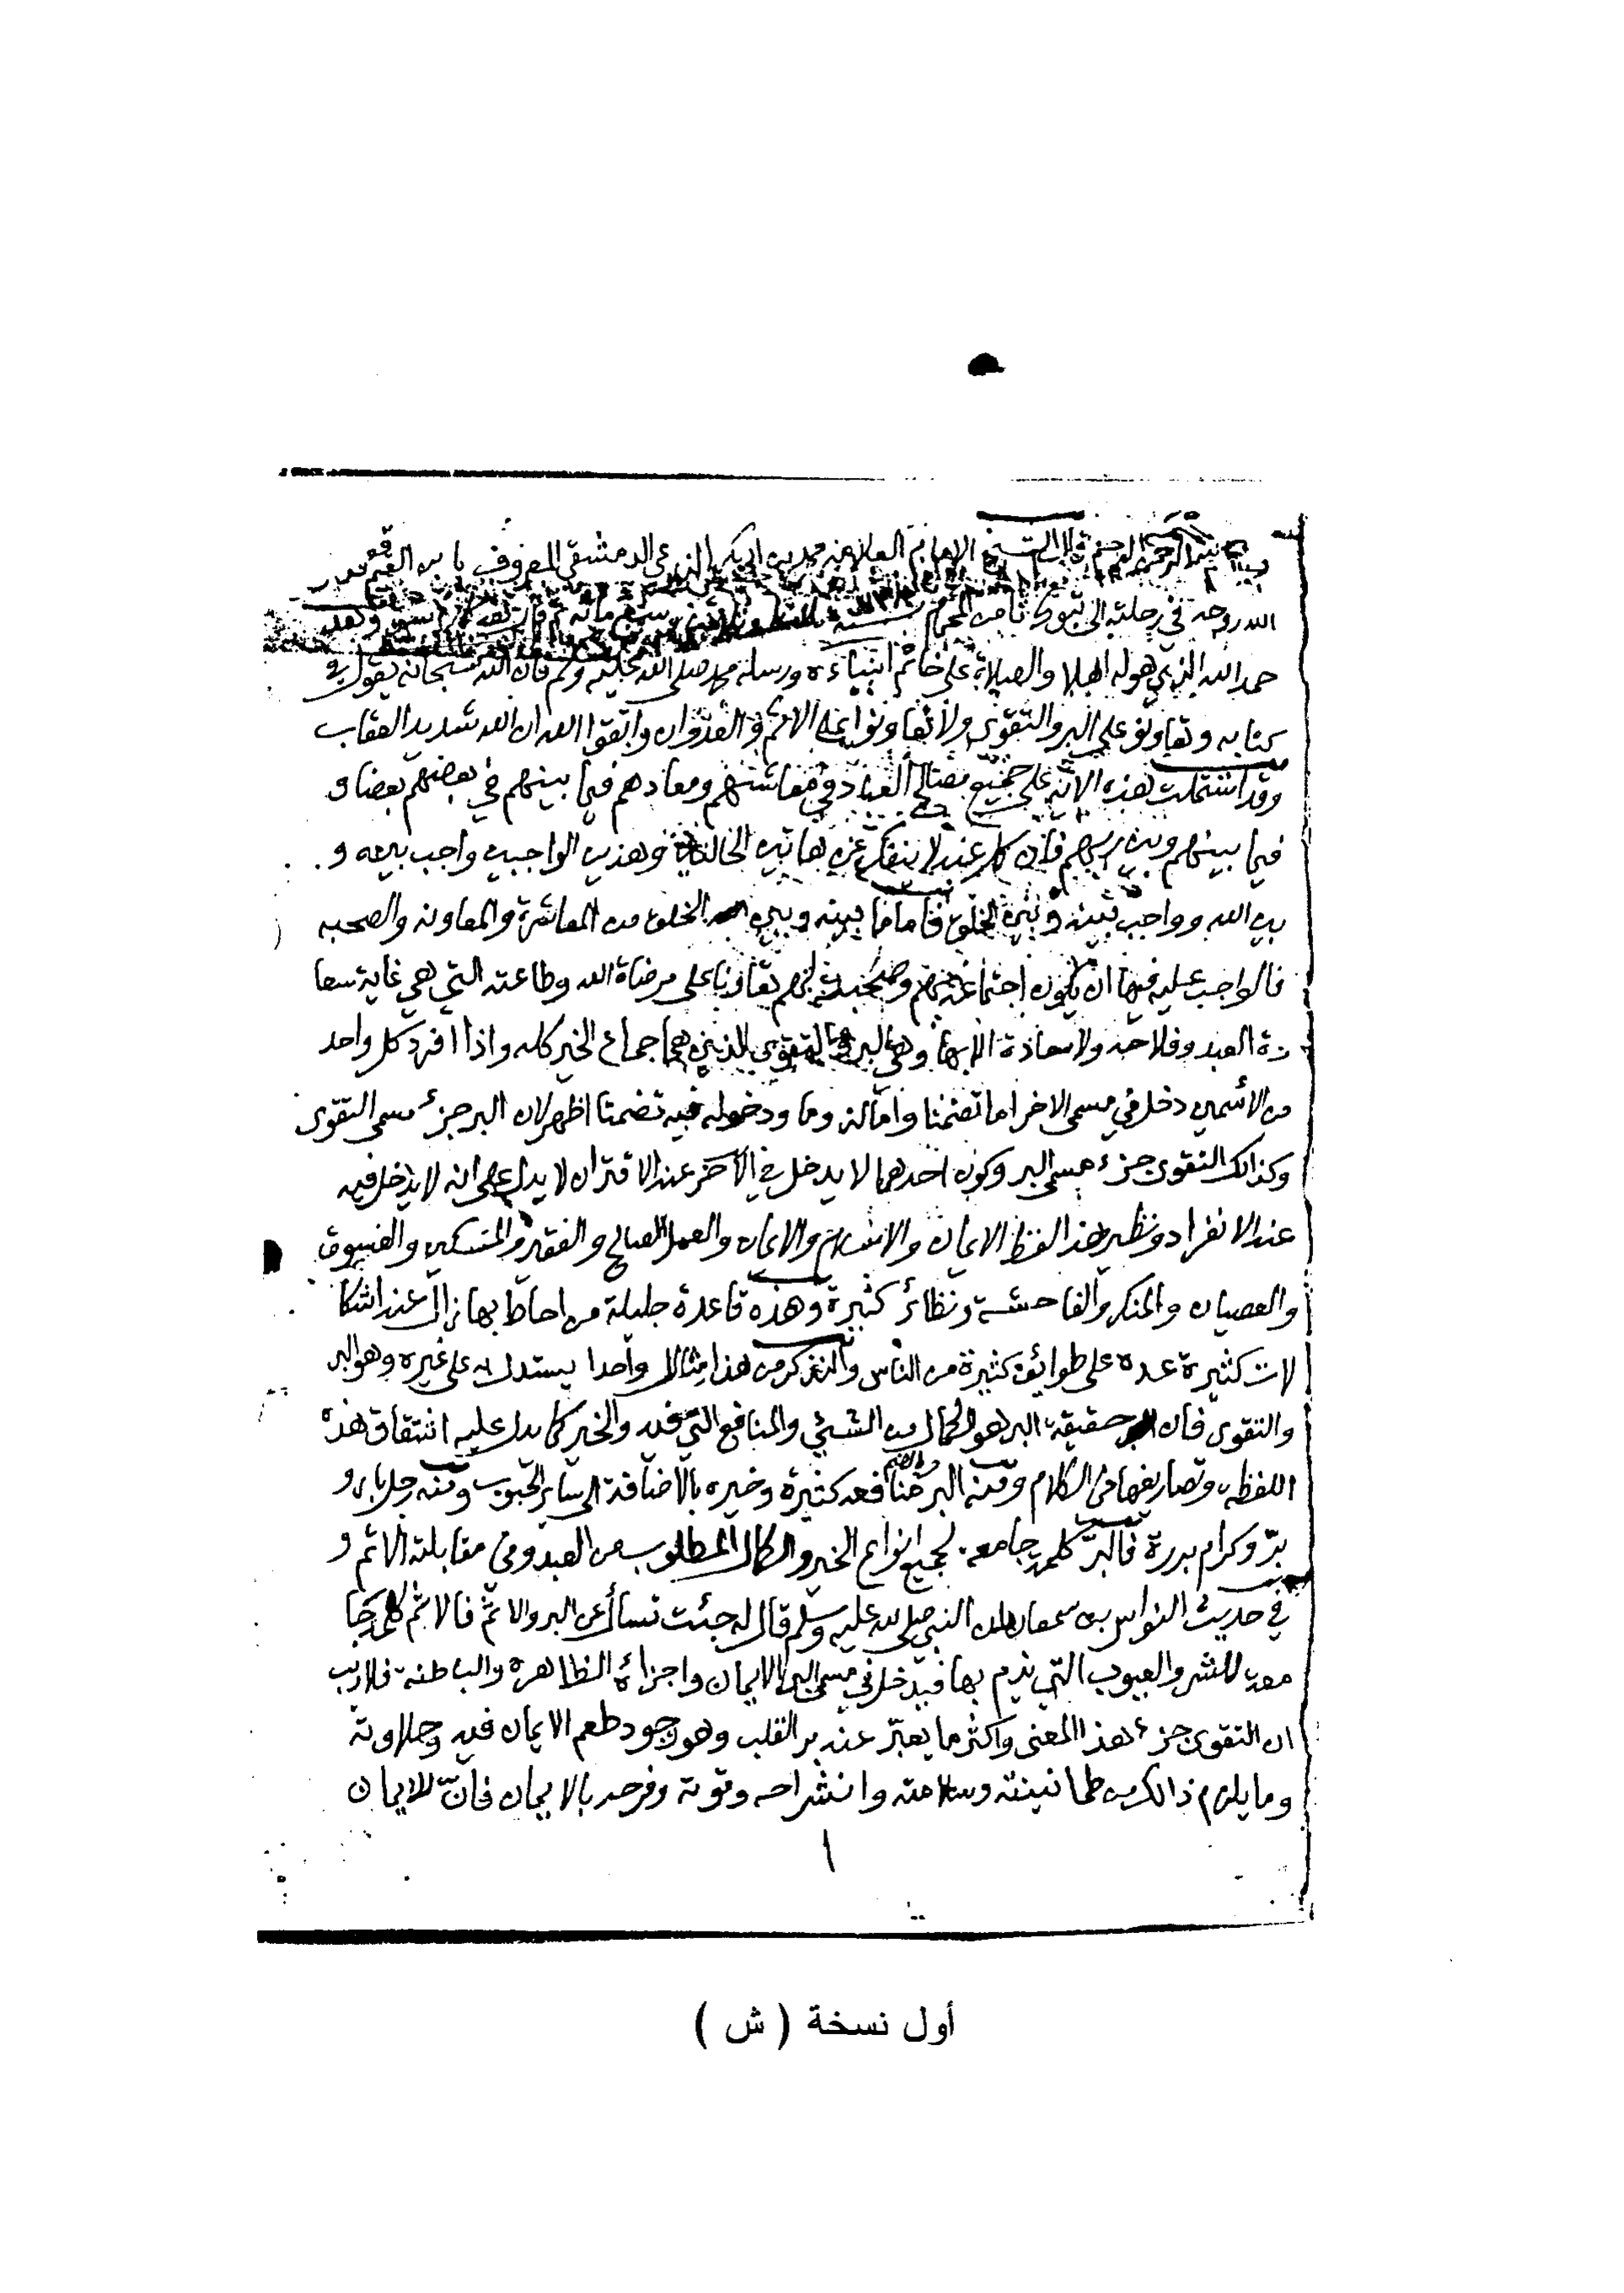 بسم الله الرحمن الرحيم قال الشيخ الامام العلامة محمد بن ابي بكر الزرعي الدمشقي المعروف بابن القيم
الله روحه في رحلته الى تبوك ثامن المحرم سنة
حمد الله الذي هو له اهلا والصلاة على خاتم انبياءه ورسله محمد صلى الله عليه وسلم فان الله سبحانه يقول في
كتابه وتعاونو على البر والتقوى ولا تعاونوا على الاثم والعدوان واتقوا الله ان الله شديد العقاب
وقد اشتملت هذه الاية على جميع مصالح العباد في معاشهم ومعادهم فيما بينهم في بعضهم بعضا و
فيما بينهم وبين ربهم فان كل عبد لا ينفك عن هاتين الحالتين وهذين الواجبين واجب بينه و
بين الله وواجب بينه وبين الخلق فاما ما بينه وبين الخلق من المعاشرة والمعاونه والصحبه
فالواجب عليه فيها ان يكون اجتماعه بهم وصحبته لهم تعاونا على مرضاة الله وطاعته التي هي غاية سعا
دة العبد وفلاحه ولا سعادة له الا بها وهي البر والتقوى اللذين هما جماع الخير كله واذا افرد كل واحد
من الاسمين دخل في مسمى الاخر اما تضمنا واما لزوما ودخوله فيه تضمنا اظهر لان البر جزء مسمى التقوى
وكذالك التقوى جزء مسمى البر وكون احدهما لا يدخل في الآخر عند الاقتران لا يدل على انه لا يدخل فيه
عند الانفراد ونظير هذا لفظ الايمان والاسلام والايمان والعمل الصالح والفقير والمسكين والفسوق
والعصيان والمنكر والفاحشة ونظائر كثيرة وهذه قاعدة جليلة من احاط بها زال عنه اشكا
لات كثيرة عده على طوائف كثيرة من الناس ولنذكر من هذا مثالا واحدا يستدل به على غيره وهو البر
والتقوى فان حقيقة البر هو الكمال من الشيئ والمنافع التي فيه والخير كما يدل عليه اشتقاق هذه
اللفظه وتصاريفها في الكلام ومنه البر بالضم لمنافعه كثيرة وخيره بالاضافة الى سائر الحبوب ومنه رجل بار و
برّ وكرام بررة فالبرّ كلمة جامعه لجميع انواع الخير والكمال المطلوب من العبد وفي مقابلته الاثم و
في حديث النواس بن سمعان ان النبي صلى الله عليه وسلم قال له جئت تسأل عن البر والاثم فالاثم كلمة جا
معة للشر والعيوب التي يذم بها فيدخل في مسمى البر الايمان واجزاءه الظاهرة والباطنة فلا ريب
ان التقوى جزء هذا المعنى واكثر ما يعبّر عنه بر القلب وهو وجود طعم الايمان فيه وحلاوته
وما يلزم ذالك من طمانينته وسلامته وانشراحه وقوته وفرحه بالايمان فانّ للايمان
١
أول نسخة ( ش )